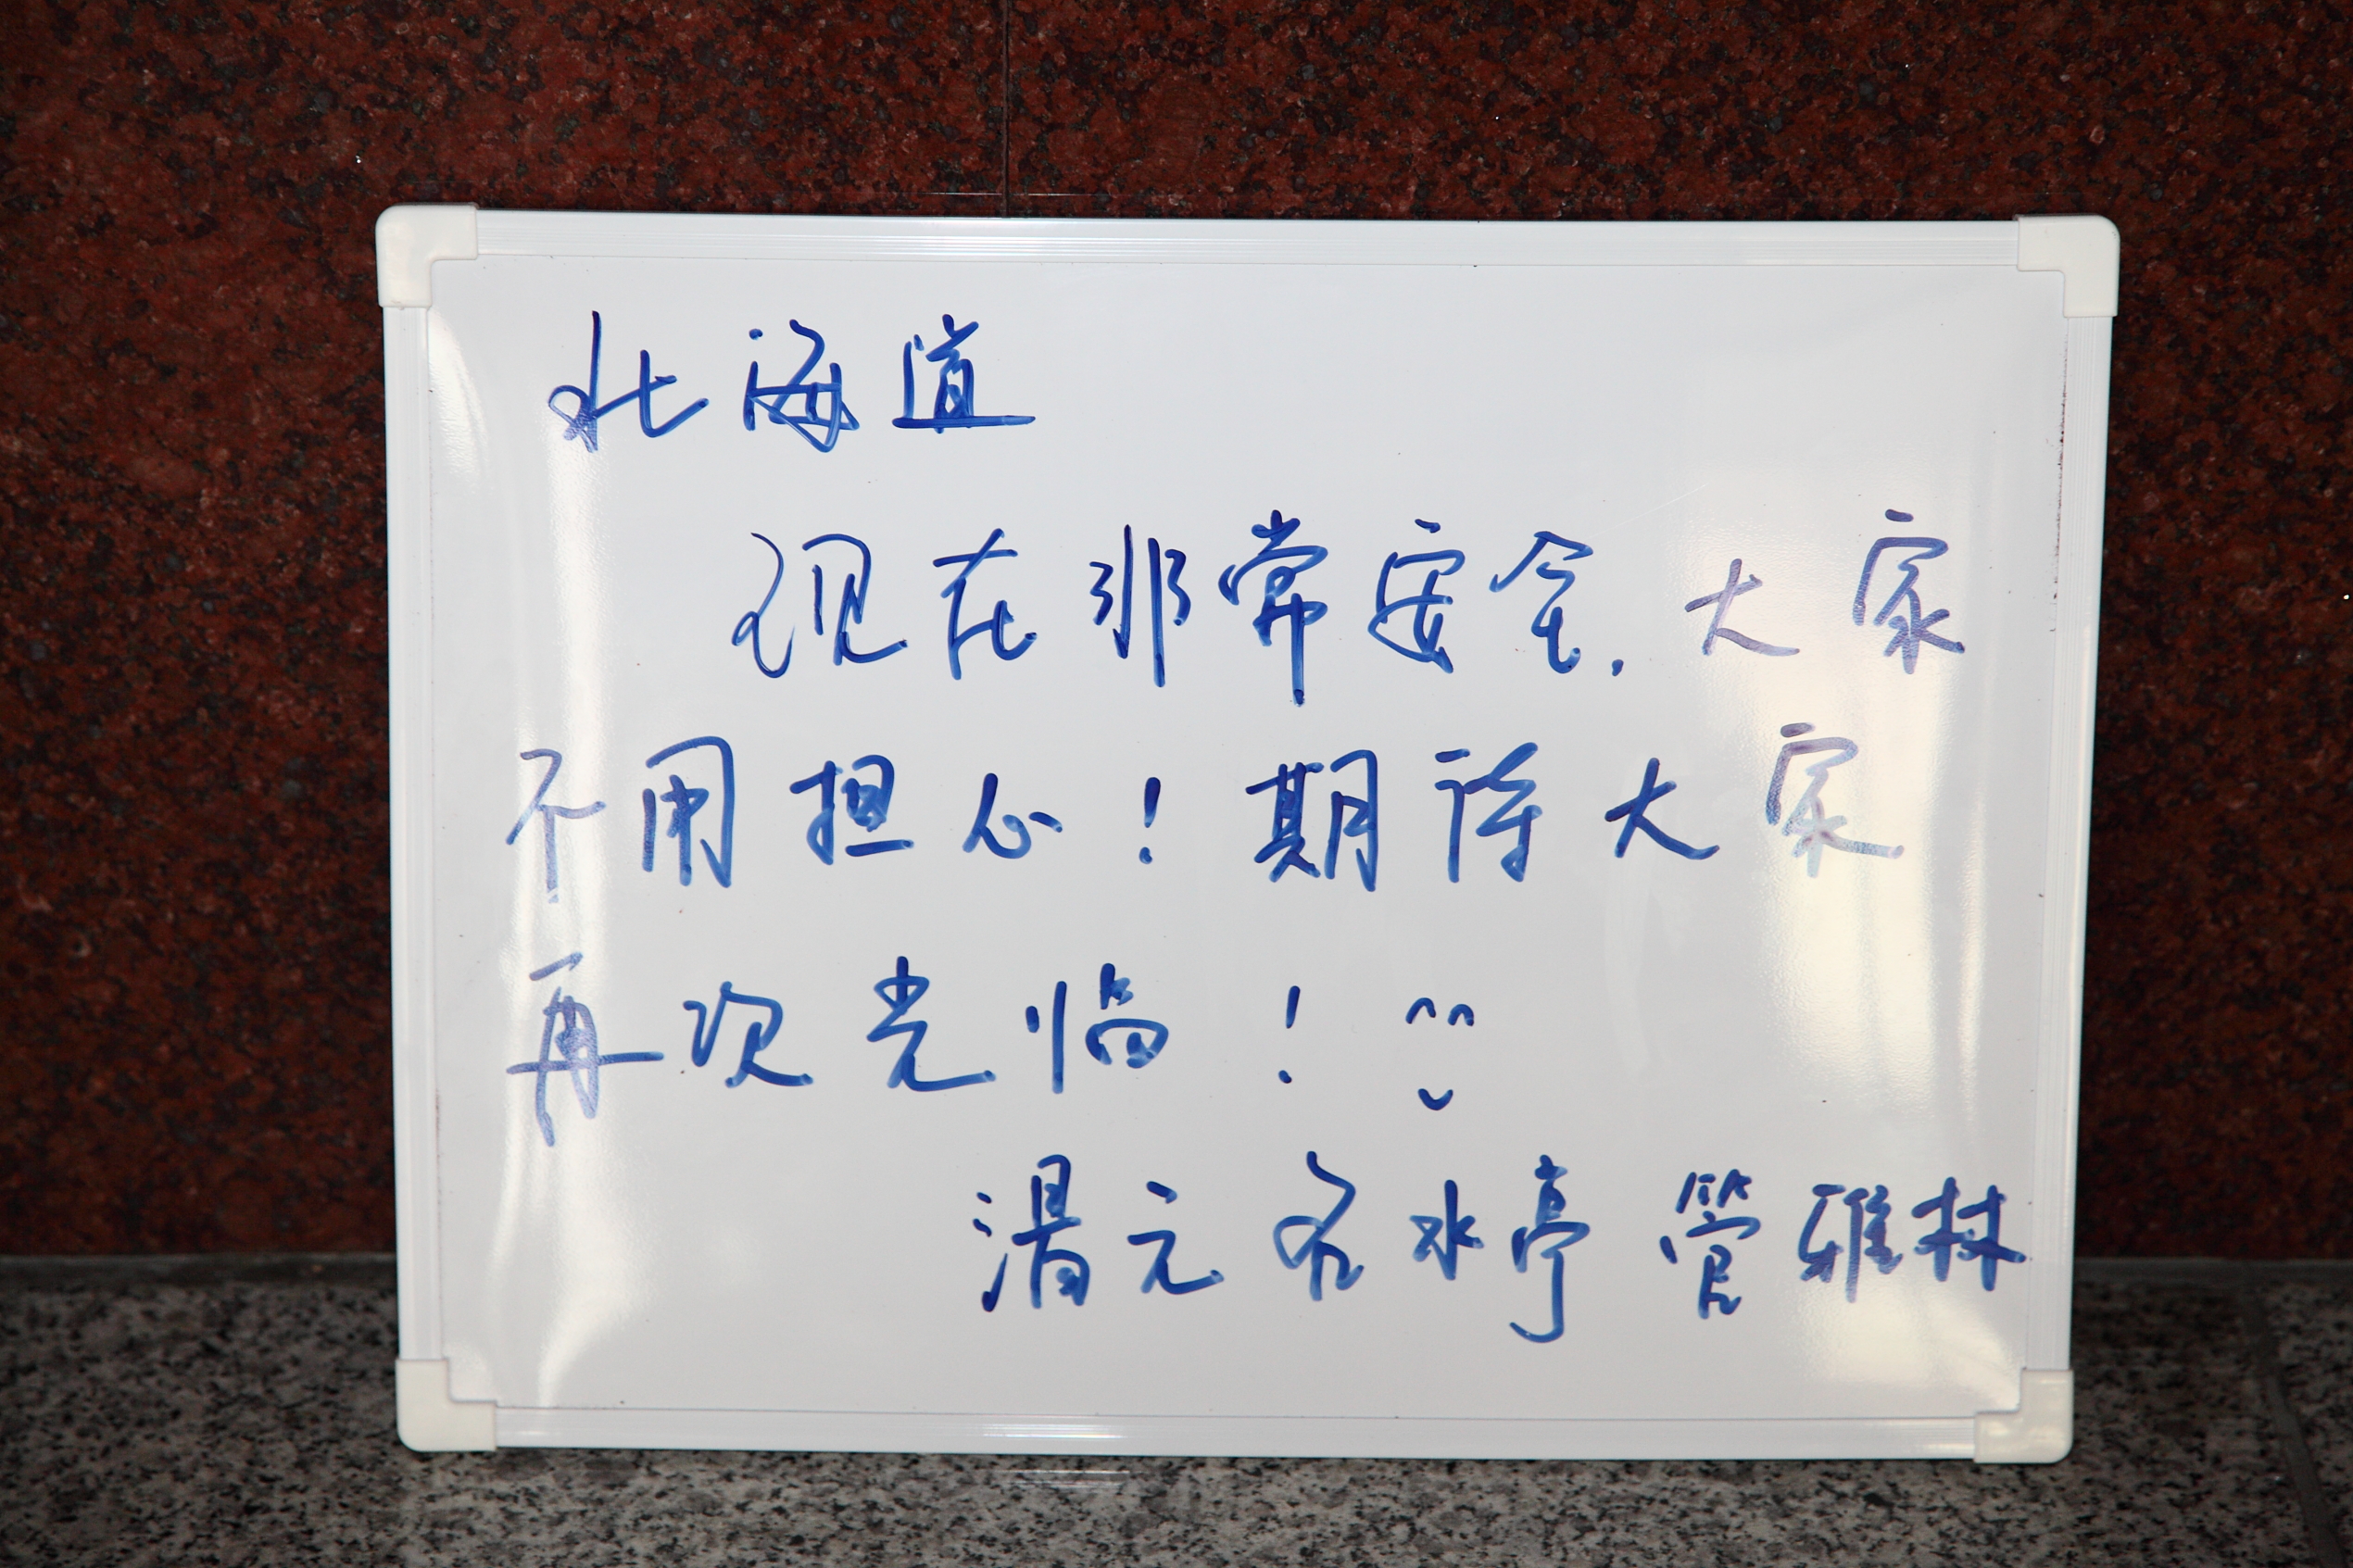 北海道
现在非常安全.大家
不用担心!期待大家
再次光临!
湯元名水亭 管雅林